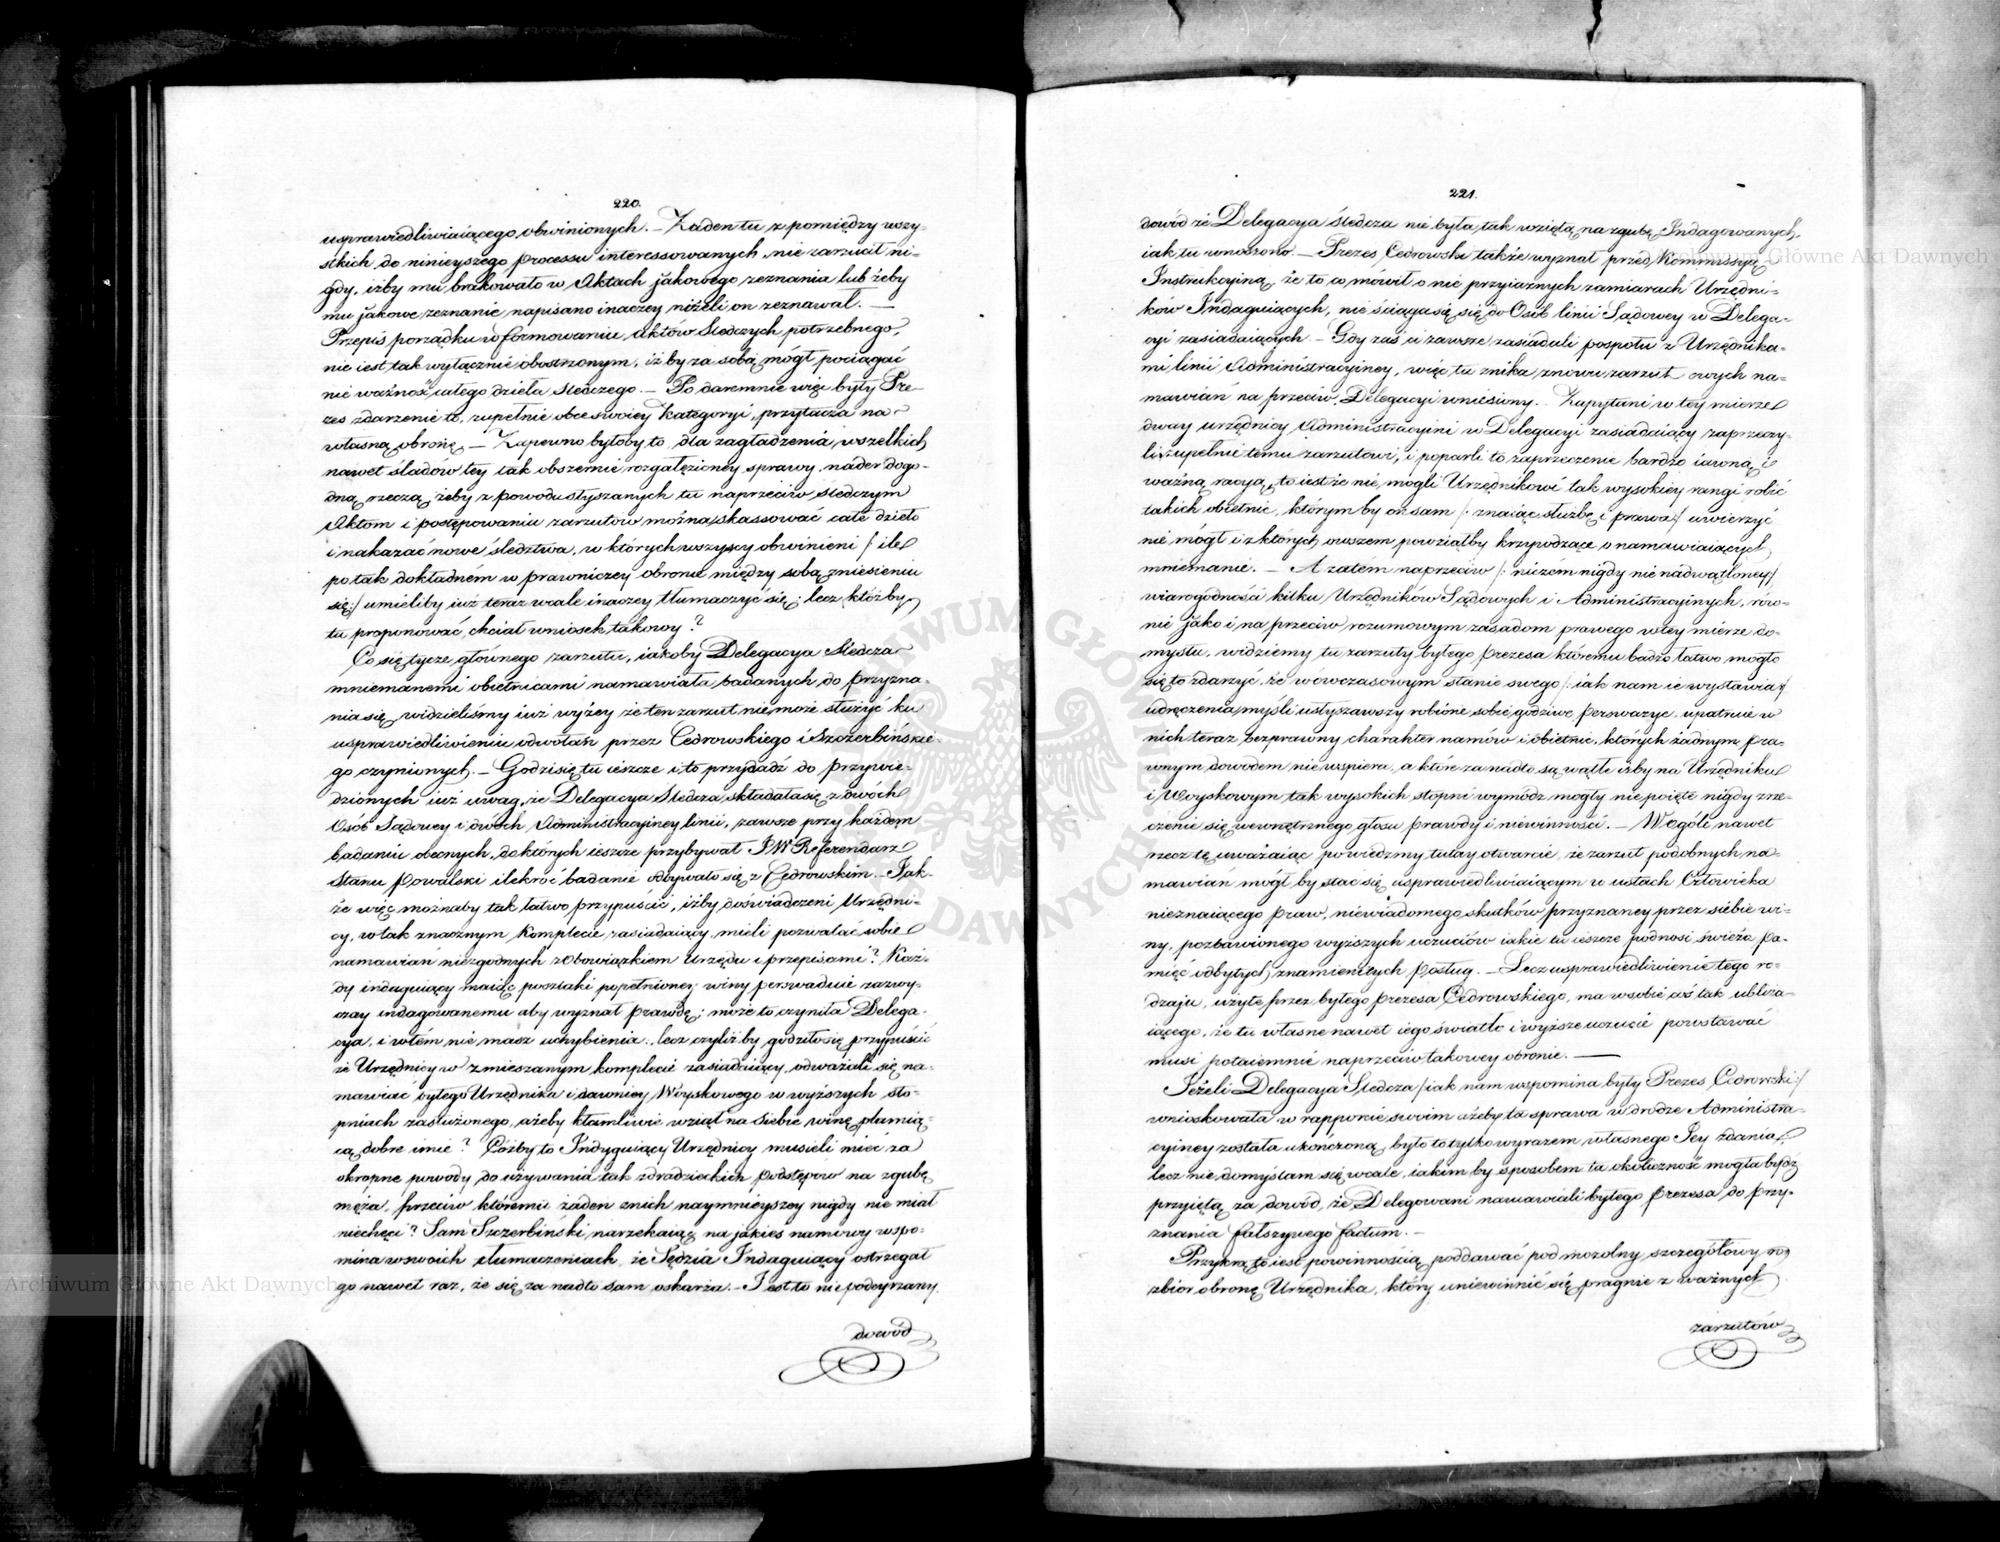 220.
usprawiedliwiaiącego obwinionych. – Żaden tu z pomiędzy wszy-
stkich do ninieyszego processu interessowanych, nie zarzucał ni-
gdy, iżby mu brakowało w Aktach jakowego zeznania lub żeby
mu jakowe zeznanie napisano inaczey niżeli on zeznawał. —
Przepis porządku w formowaniu Aktów Śledczych potrzebnego,
nie iest tak wyłącznie obostrzonym, iżby za sobą mógł pociągać
nie ważność całego dzieła śledczego. – Po daremnie więc były Pre-
zes zdarzenie to, zupełnie obce swoiey kategoryi, przytacza na
własną obronę. – Zapewno byłoby to dla zagładzenia wszelkich
nawet śladów tey tak obszernie rozgałęzioney sprawy, nader dogo-
dną rzeczą, żeby z powodu słyszanych tu naprzeciw śledczym
Aktom i postępowaniu zarzutów można skassować całe dzieło
i nakazać nowe śledztwa, w których wszyscy obwinieni /: ile
po tak dokładném w prawniczey obronie między sobą zniesieniu
się :/ umieliby iuż teraz wcale inaczey tłumaczyć się; lecz któżby
tu proponować chciał wniosek takowy?
Co się tycze głównego zarzutu, iakoby Delegacya Śledcza
mniemanemi obietnicami namawiała badanych do przyzna-
nia się, widzieliśmy iuż wyżey że ten zarzut nie może służyć ku
usprawiedliwieniu odwołań przez Cedrowskiego i Szczerbińskie-
go czynionych. – Godzi się tu ieszcze i to przydadź do przywie-
dzionych iuż uwag, że Delegacya Śledcza składała się z dwóch
Osób Sądowey i dwóch Administracyiney linii, zawsze przy każdem
badaniu obecnych, do których ieszcze przybywał JW Referendarz
Stanu Kowalski ilekroć badanie odbywało się z Cedrowskim. – Jak-
że więc możnaby tak łatwo przypuścić, iżby doświadczeni Urzędni-
cy, w tak znacznym komplecie zasiadaiący, mieli pozwalać sobie
namawiań niezgodnych z obowiązkiem Urzędu i przepisami? Każ-
dy indaguiący maiąc poszlaki popełnioney winy perswaduie zazwy-
czay indagowanemu aby wyznał prawdę; może to czyniła Delega-
cya, i w tém nie masz uchybienia, lecz czyliż by godziło się przypuścić
że Urzędnicy w zmieszanym komplecie zasiadaiący, odważali się na-
mawiać byłego Urzędnika i dawniey Woyskowego w wyższych sto-
pniach zasłużonego, ażeby kłamliwie wziął na siebie winę plamią-
cą dobre imie? Cóżby to Indyguiący Urzędnicy musieli mieć za
okropne powody do używania tak zdradzieckich podstępów na zgubę
męża, przeciw któremu żaden z nich naymnieyszey nigdy nie miał
niechęci? Sam Szczerbiński, narzekaiąc na jakieś namowy wspo-
mina w swoich tłumaczeniach, że Sędzia Indaguiący ostrzegał
go nawet raz, że się za nadto sam oskarża. – Jest to nie podeyrzany
dowód
221.
dowód że Delegacya śledcza nie była tak wzięta na zgubę Indagowanych,
iak tu wnoszono. – Prezes Cedrowski także wyznał przed Kommissyą
Instrukcyiną, że to co mówił o nie przyiaznych zamiarach Urzędni-
ków Indaguiących, nie ściągasię się do Osób linii Sądowey w Delega-
cyi zasiadaiących. – Gdy zaś ci zawsze zasiadali pospołu z Urzędnika-
mi linii Administracyiney, więc tu znika znowu zarzut owych na-
mawiań na przeciw Delegacyi wniesiony. Zapytani w tey mierze
dway urzędnicy Administracyini w Delegacyi zasiadaiący zaprzeczy-
li zupełnie temu zarzutowi, i poparli to zaprzeczenie bardzo iawną i
ważną racyą, to iest że nie mogli Urzędnikowi tak wysokiey rangi robić
takich obietnic, którym by on sam /: znaiąc służbę i prawa :/ uwierzyć
nie mógł i z których owszem powziąłby krzywdzące o namawiaiących
mniemanie. – A zatém naprzeciw /: niczem nigdy nie nadwątloney :/
wiarogodności kilku Urzędników Sądowych i Administracyinych, rów-
nie jako i na przeciw rozumowym zasadom prawego w tey mierze do-
mysłu, widziemy tu zarzuty byłego prezesa któremu badzo łatwo mogło
się to zdarzyć, że w ówczasowym stanie swego /: iak nam ie wystawia :/
udręczenia myśli usłyszawszy robione sobie godziwe perswazye, upatruie w
nich teraz bezprawny charakter namów i obietnic, których żadnym pra-
wnym dowodem nie wspiera, a które za nadto są wątłe iżby na Urzędniku
i Woyskowym tak wysokich stopni wymódz mogły nie poięte nigdy zrze-
czenie się wewnętrznego głosu prawdy i niewinności. – Wogóle nawet
rzecz tę uważaiąc, powiedzmy tutay otwarcie, że zarzut podobnych na-
mawiań mógł by stać się usprawiedliwiaiącym w ustach Człowieka
nieznaiącego praw, niewiadomego skutków przyznaney przez siebie wi-
ny, pozbawionego wyższych uczuciów iakie tu ieszcze podnosi świeża pa-
mięć odbytych znamienitych posług. – Lecz usprawiedliwienie tego ro-
dzaju, użyte przez byłego prezesa Cedrowskiego, ma w sobie coś tak ubliża-
iącego, że tu własne nawet iego światło i wyższe uczucie powstawać
musi potaiemnie naprzeciw takowey obronie. —
Jeżeli Delegacya Śledcza /: iak nam wspomina były Prezes Cedrowski :/
wnioskowała w rapporcie swoim ażeby ta sprawa w drodze Administra-
cyiney została ukończoną, było to tylko wyrazem własnego Jey zdania,
lecz nie domyślam się wcale, iakim by sposobem ta okoliczność mogła bydź
przyiętą za dowód, że Delegowani namawiali byłego prezesa do przy-
znania fałszywego factum. –
Przykrą to iest powinnością, poddawać pod mozolny szczegółowy ro-
zbiór obronę Urzędnika, który uniewinnić się pragnie z ważnych
zarzutów
Archiwum Główne Akt Dawnych
Archiwum Główne Akt Dawnych
ARCHIWUM GŁÓWNE AKT DAWNYCH